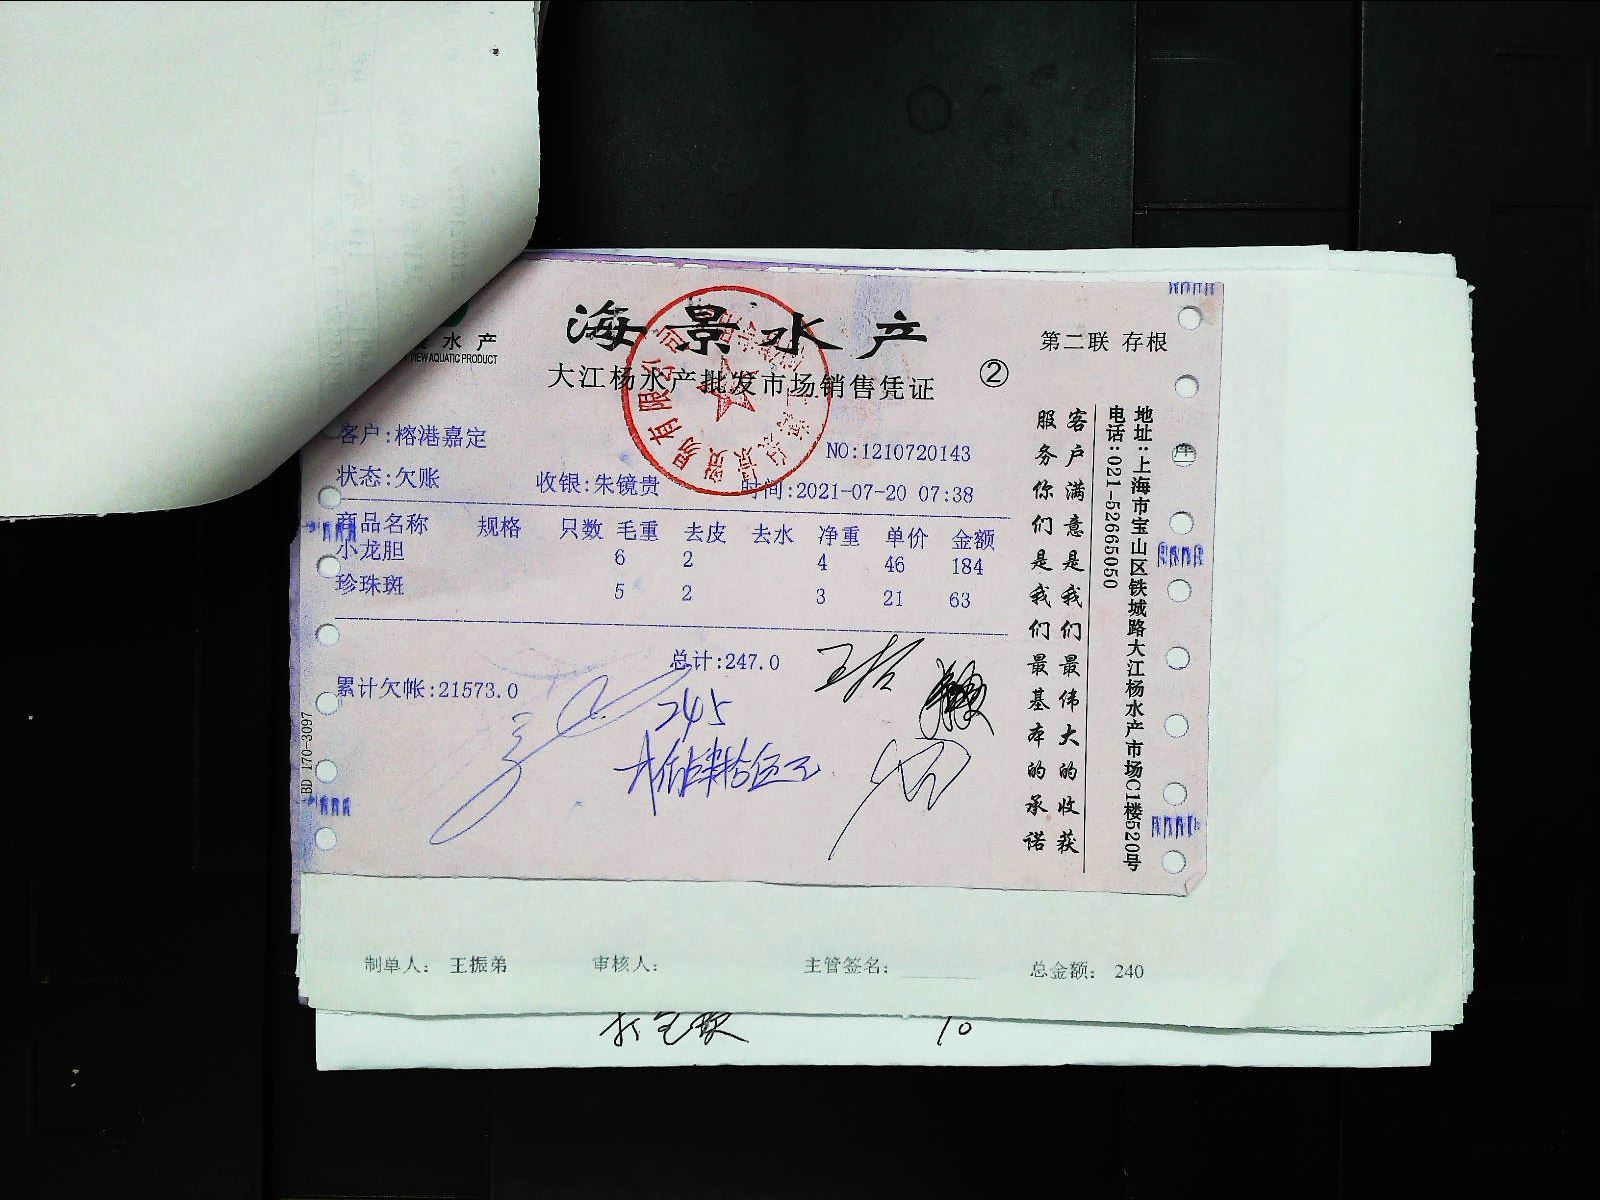 海景水产
水产
VIEW AQUATIC PRODUCT
大江杨水产批发市场销售凭证
②
第二联 存根
客户:榕港嘉定
NO:1210720143
状态:欠账 收银:朱镜贵 时间:2021-07-20 07:38
商品名称 规格 只数 毛重 去皮 去水 净重 单价 金额
小龙胆 6 2 4 46 184
珍珠斑 5 2 3 21 63
总计:247.0
累计欠帐:21573.0
245
客户满意是我们最伟大的收获
服务你们是我们最基本的承诺
地址:上海市宝山区铁城路大江杨水产市场C1楼520号
电话:021-52665050
BD 170-3097
贸易有限公司
制单人: 王振弟 审核人: 主管签名: 总金额: 240
10